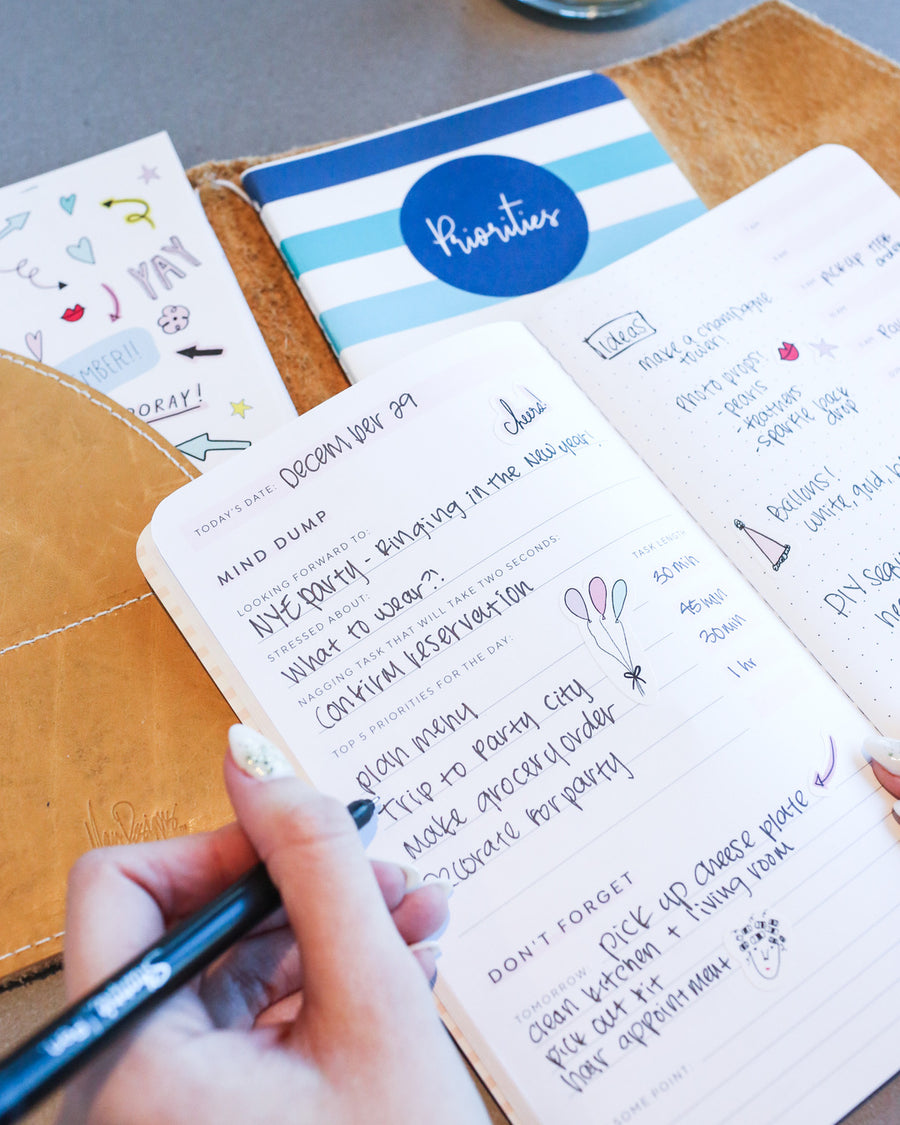 YAY
ORAY!
Priorities
TODAY'S DATE: December 29
cheers!
MIND DUMP
LOOKING FORWARD TO:
NYE party - Ringing in the new year!
STRESSED ABOUT:
What to wear?!
NAGGING TASK THAT WILL TAKE TWO SECONDS:
Confirm reservation
TOP 5 PRIORITIES FOR THE DAY:
TASK LENGTH
plan menu 30 min
Trip to Party City 45 min
Make grocery order 30 min
Decorate for party 1 hr
DON'T FORGET
TOMORROW: pick up cheese plate
clean kitchen + living room
pick out fit
hair appointment
SOME POINT:
Ideas
make a champagne
tower!
photo props!
- pearls
- feathers
- sparkle back
drop
Ballons!
white, gold,
DIY
pick up
Sharpie Pen